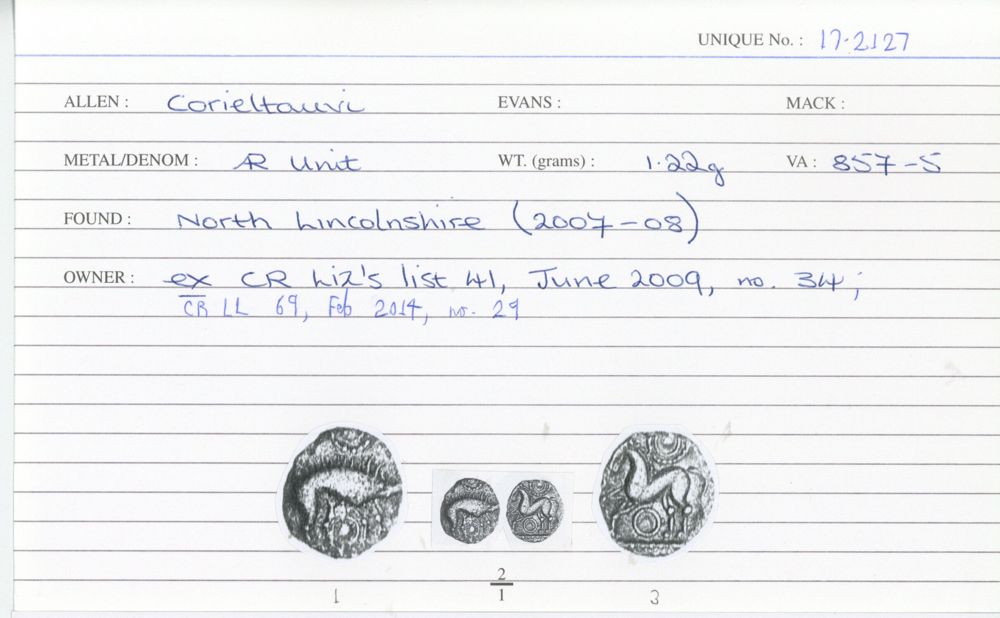 UNIQUE No. : 17.2127
ALLEN : Corieltauvi EVANS : MACK :
METAL/DENOM : AR Unit WT. (grams) : 1.22g VA : 857-5
FOUND : North Lincolnshire (2007-08)
OWNER : ex CR Liz's list 41, June 2009, no. 34;
CR LL 69, Feb 2014, no. 29
2
1 1 3